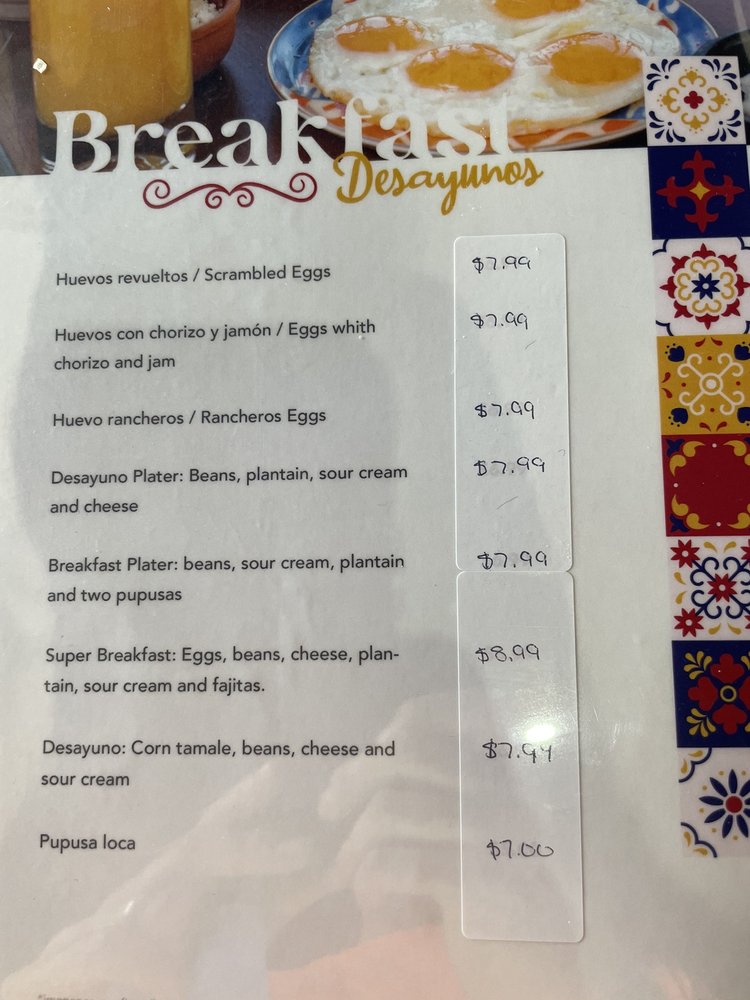 Breakfast
Desayunos
Huevos revueltos / Scrambled Eggs $7.99
Huevos con chorizo y jamón / Eggs whith $7.99
chorizo and jam
Huevo rancheros / Rancheros Eggs $7.99
Desayuno Plater: Beans, plantain, sour cream $7.99
and cheese
Breakfast Plater: beans, sour cream, plantain $7.99
and two pupusas
Super Breakfast: Eggs, beans, cheese, plan- $8.99
tain, sour cream and fajitas.
Desayuno: Corn tamale, beans, cheese and $7.99
sour cream
Pupusa loca $7.00